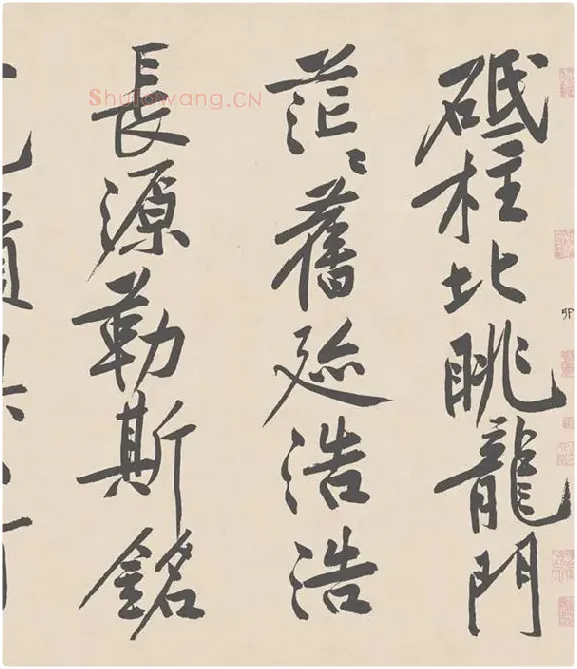 砥柱北眺龍門
茫々舊迹浩浩
長源勒斯銘
Shufawang.CN